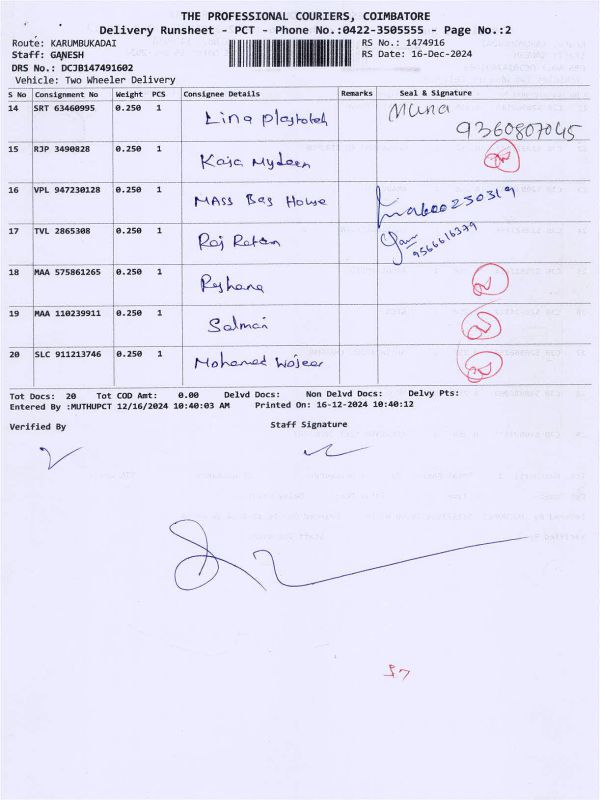 THE PROFESSIONAL COURIERS, COIMBATORE
Delivery Runsheet - PCT - Phone No.:0422-3505555 - Page No.:2
Route: KARUMBUKADAI RS No.: 1474916
Staff: GANESH RS Date: 16-Dec-2024
DRS No.: DCJB147491602
Vehicle: Two Wheeler Delivery
S No Consignment No Weight PCS Consignee Details Remarks Seal & Signature
14 SRT 63460995 0.250 1 Lina 9360807045
15 RJP 3490828 0.250 1 Kaja Mydeen
16 VPL 947230128 0.250 1 MASS Bag House
17 TVL 2865308 0.250 1 Raj Ratan 9566616379
18 MAA 575861265 0.250 1 Reshana
19 MAA 110239911 0.250 1 Salman
20 SLC 911213746 0.250 1 Mohamed
Tot Docs: 20 Tot COD Amt: 0.00 Delvd Docs: Non Delvd Docs: Delvy Pts:
Entered By :MUTHUPCT 12/16/2024 10:40:03 AM Printed On: 16-12-2024 10:40:12
Verified By Staff Signature